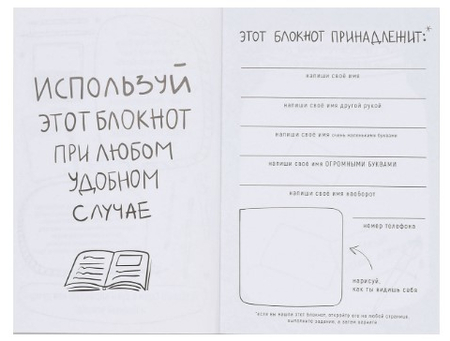 ИСПОЛЬЗУЙ
ЭТОТ БЛОКНОТ
ПРИ ЛЮБОМ
УДОБНОМ
СЛУЧАЕ
ЭТОТ БЛОКНОТ ПРИНАДЛЕЖИТ:*
напиши своё имя
напиши своё имя другой рукой
напиши своё имя очень маленькими буквами
напиши своё имя ОГРОМНЫМИ БУКВАМИ
напиши своё имя наоборот
номер телефона
нарисуй,
как ты видишь себя
*если вы нашли этот блокнот, откройте его на любой странице,
выполните задание, а затем верните